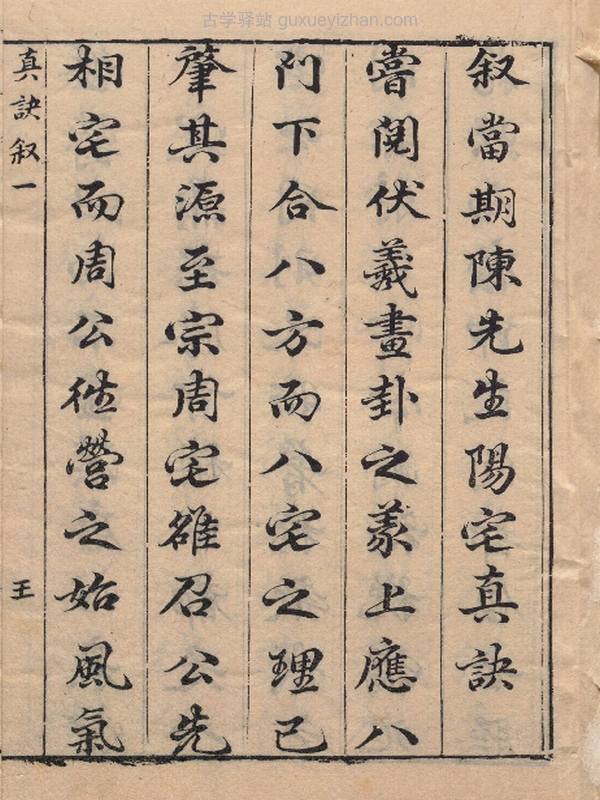 古学驿站 guxueyizhan.com
叙當期陳先生陽宅真訣
嘗閱伏羲畫卦之義上應八
門下合八方而八宅之理已
肇其源至宗周宅雒召公先
相宅而周公徃營之始風氣
真訣叙一
王